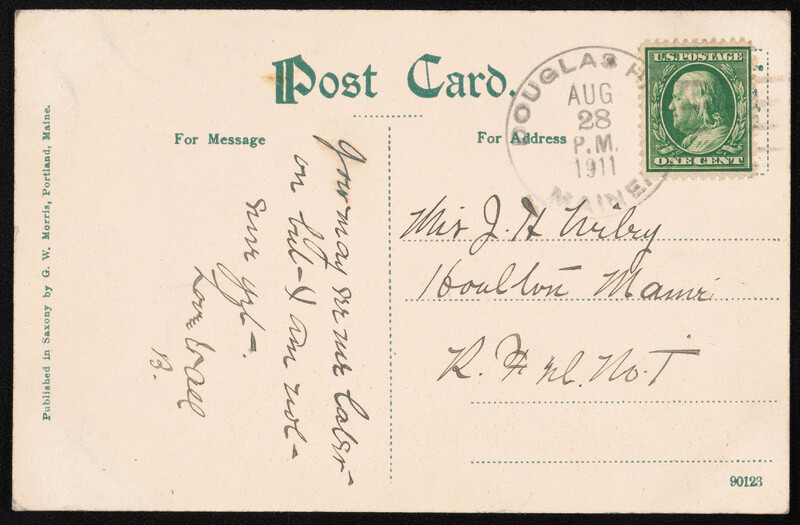 Post Card.
For Message
For Address
Published in Saxony by G. W. Morris, Portland, Maine.
DOUGLAS H
AUG
28
P.M.
1911
MAINE.
U.S. POSTAGE
ONE CENT
You may see me later
on but I am not
sure yet.
Love to all
B.
J. H
Houlton Maine
R. F. D. No. 1
90123